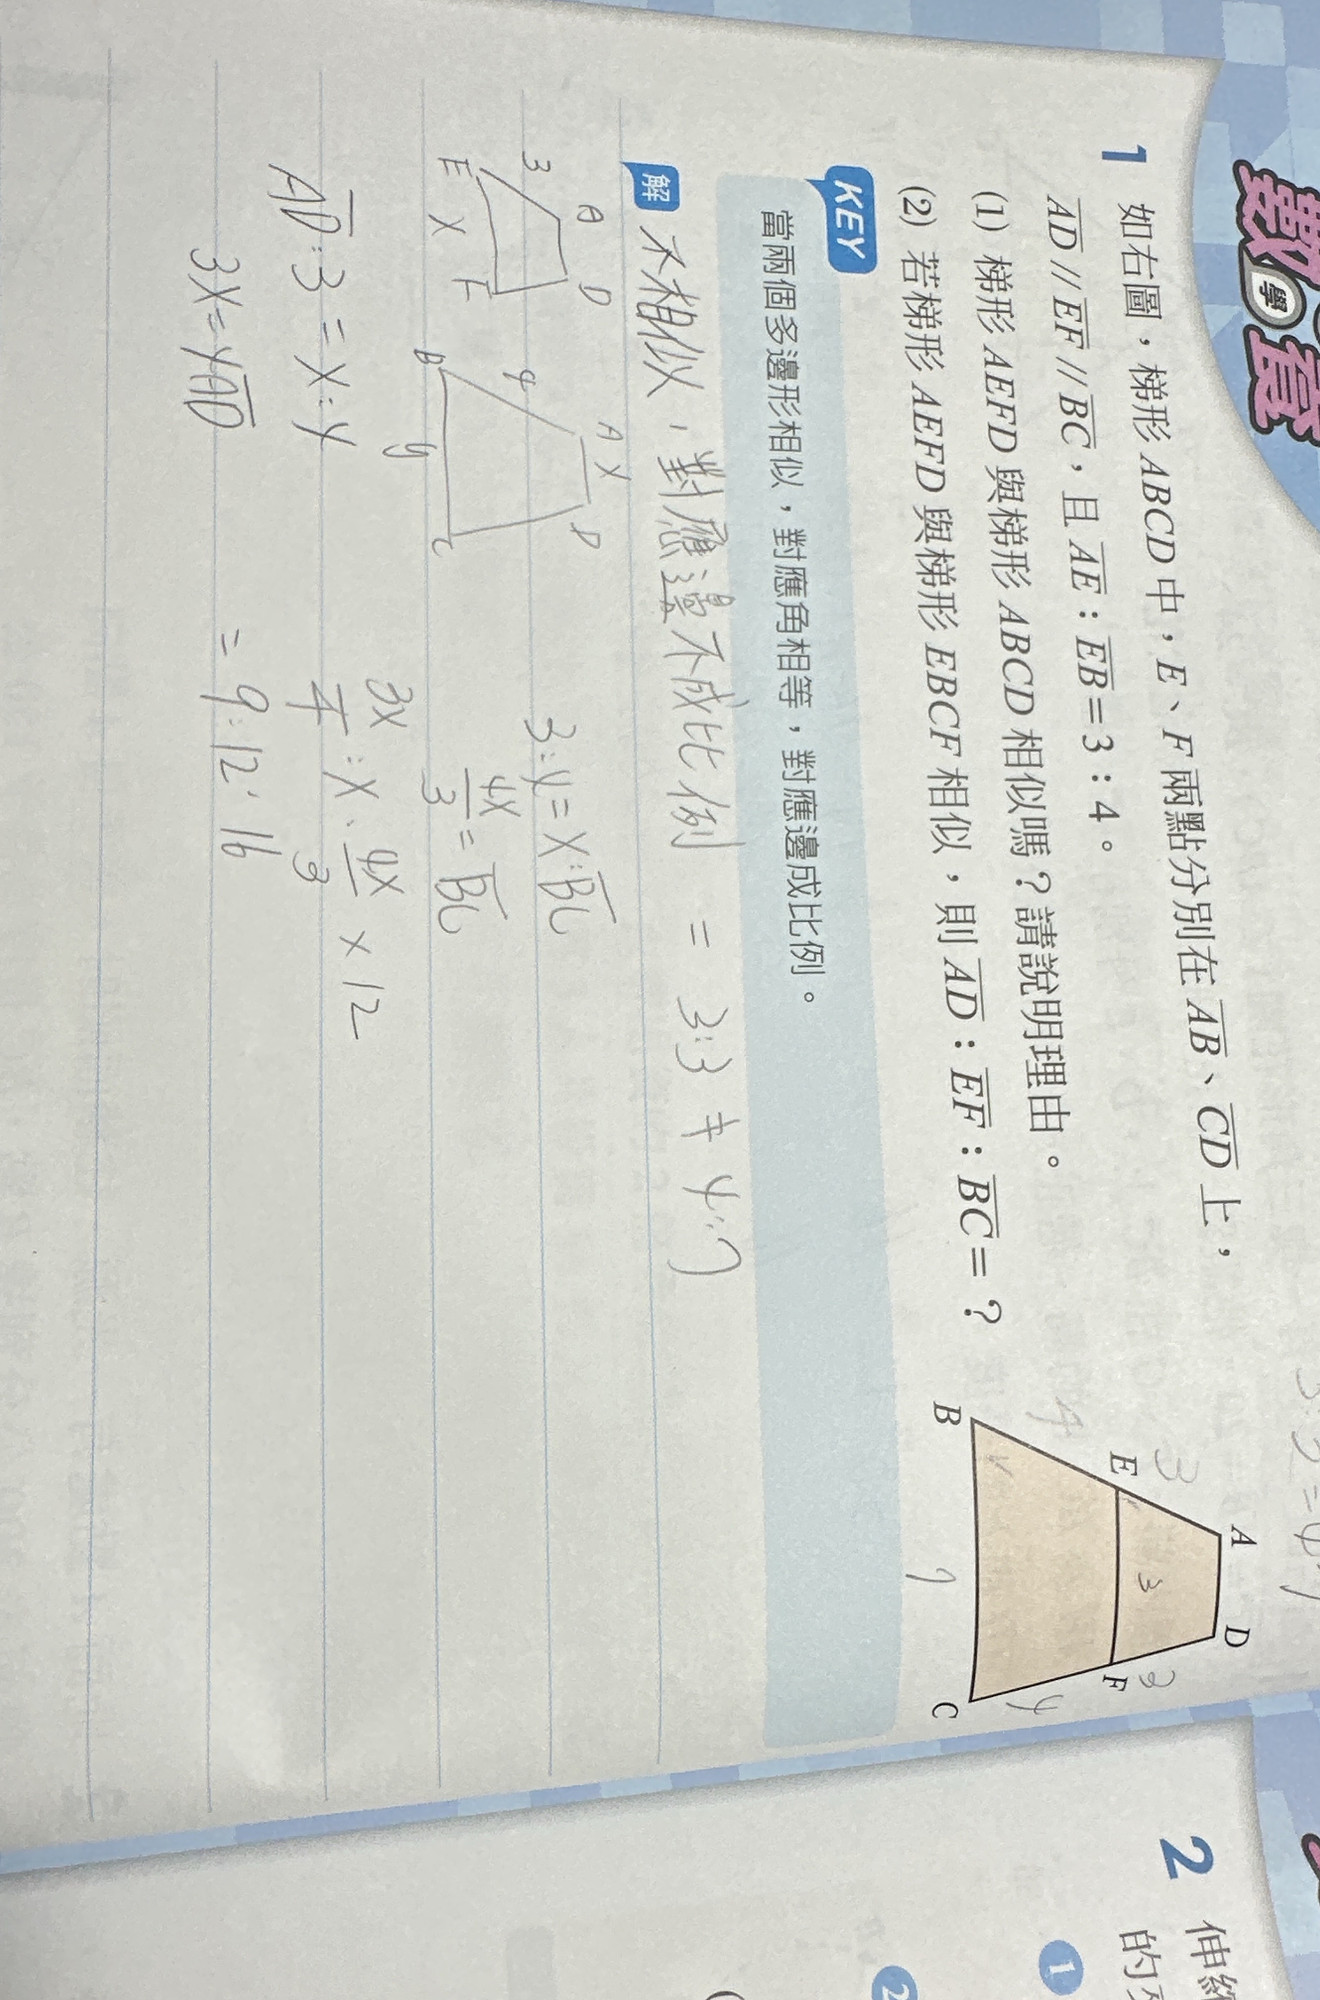 數
學
1 如右圖，梯形 ABCD 中，E、F 兩點分別在 AB、CD 上，
AD // EF // BC，且 AE：EB＝3：4。
(1) 梯形 AEFD 與梯形 ABCD 相似嗎？請說明理由。
(2) 若梯形 AEFD 與梯形 EBCF 相似，則 AD：EF：BC＝？
A D
3 3 3
E F
4 4
B C
7
KEY
當兩個多邊形相似，對應角相等，對應邊成比例。
解 不相似，對應邊不成比例 = 3:3 ≠ 4:7
A D
3
E X F
A X D
4
B y C
AD:3 = X:4
3X=4AD
3:4=X:BC
4X/3=BC
3X/4:X:4X/3 ×12
= 9:12:16
2 伸縮
的
1
2